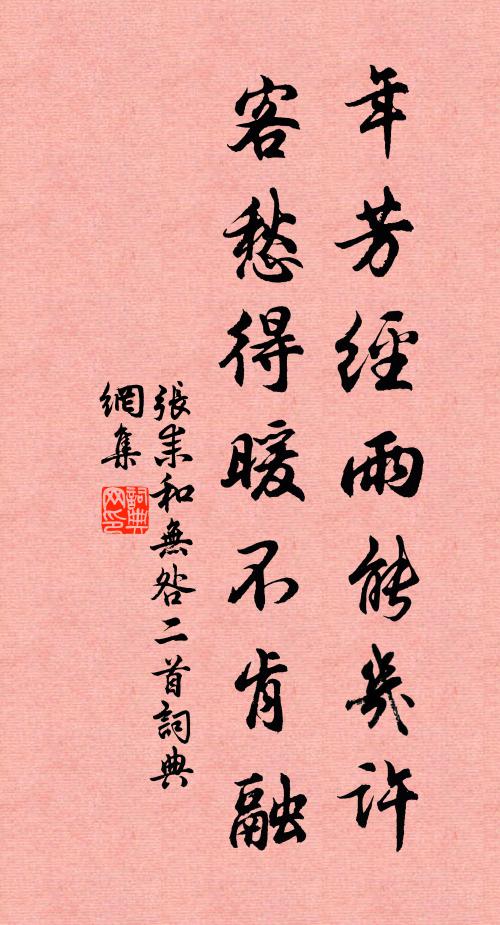 年芳經雨能幾許
客愁得暖不肯融
張耒和無咎二首詞典
網集
詞典
网印